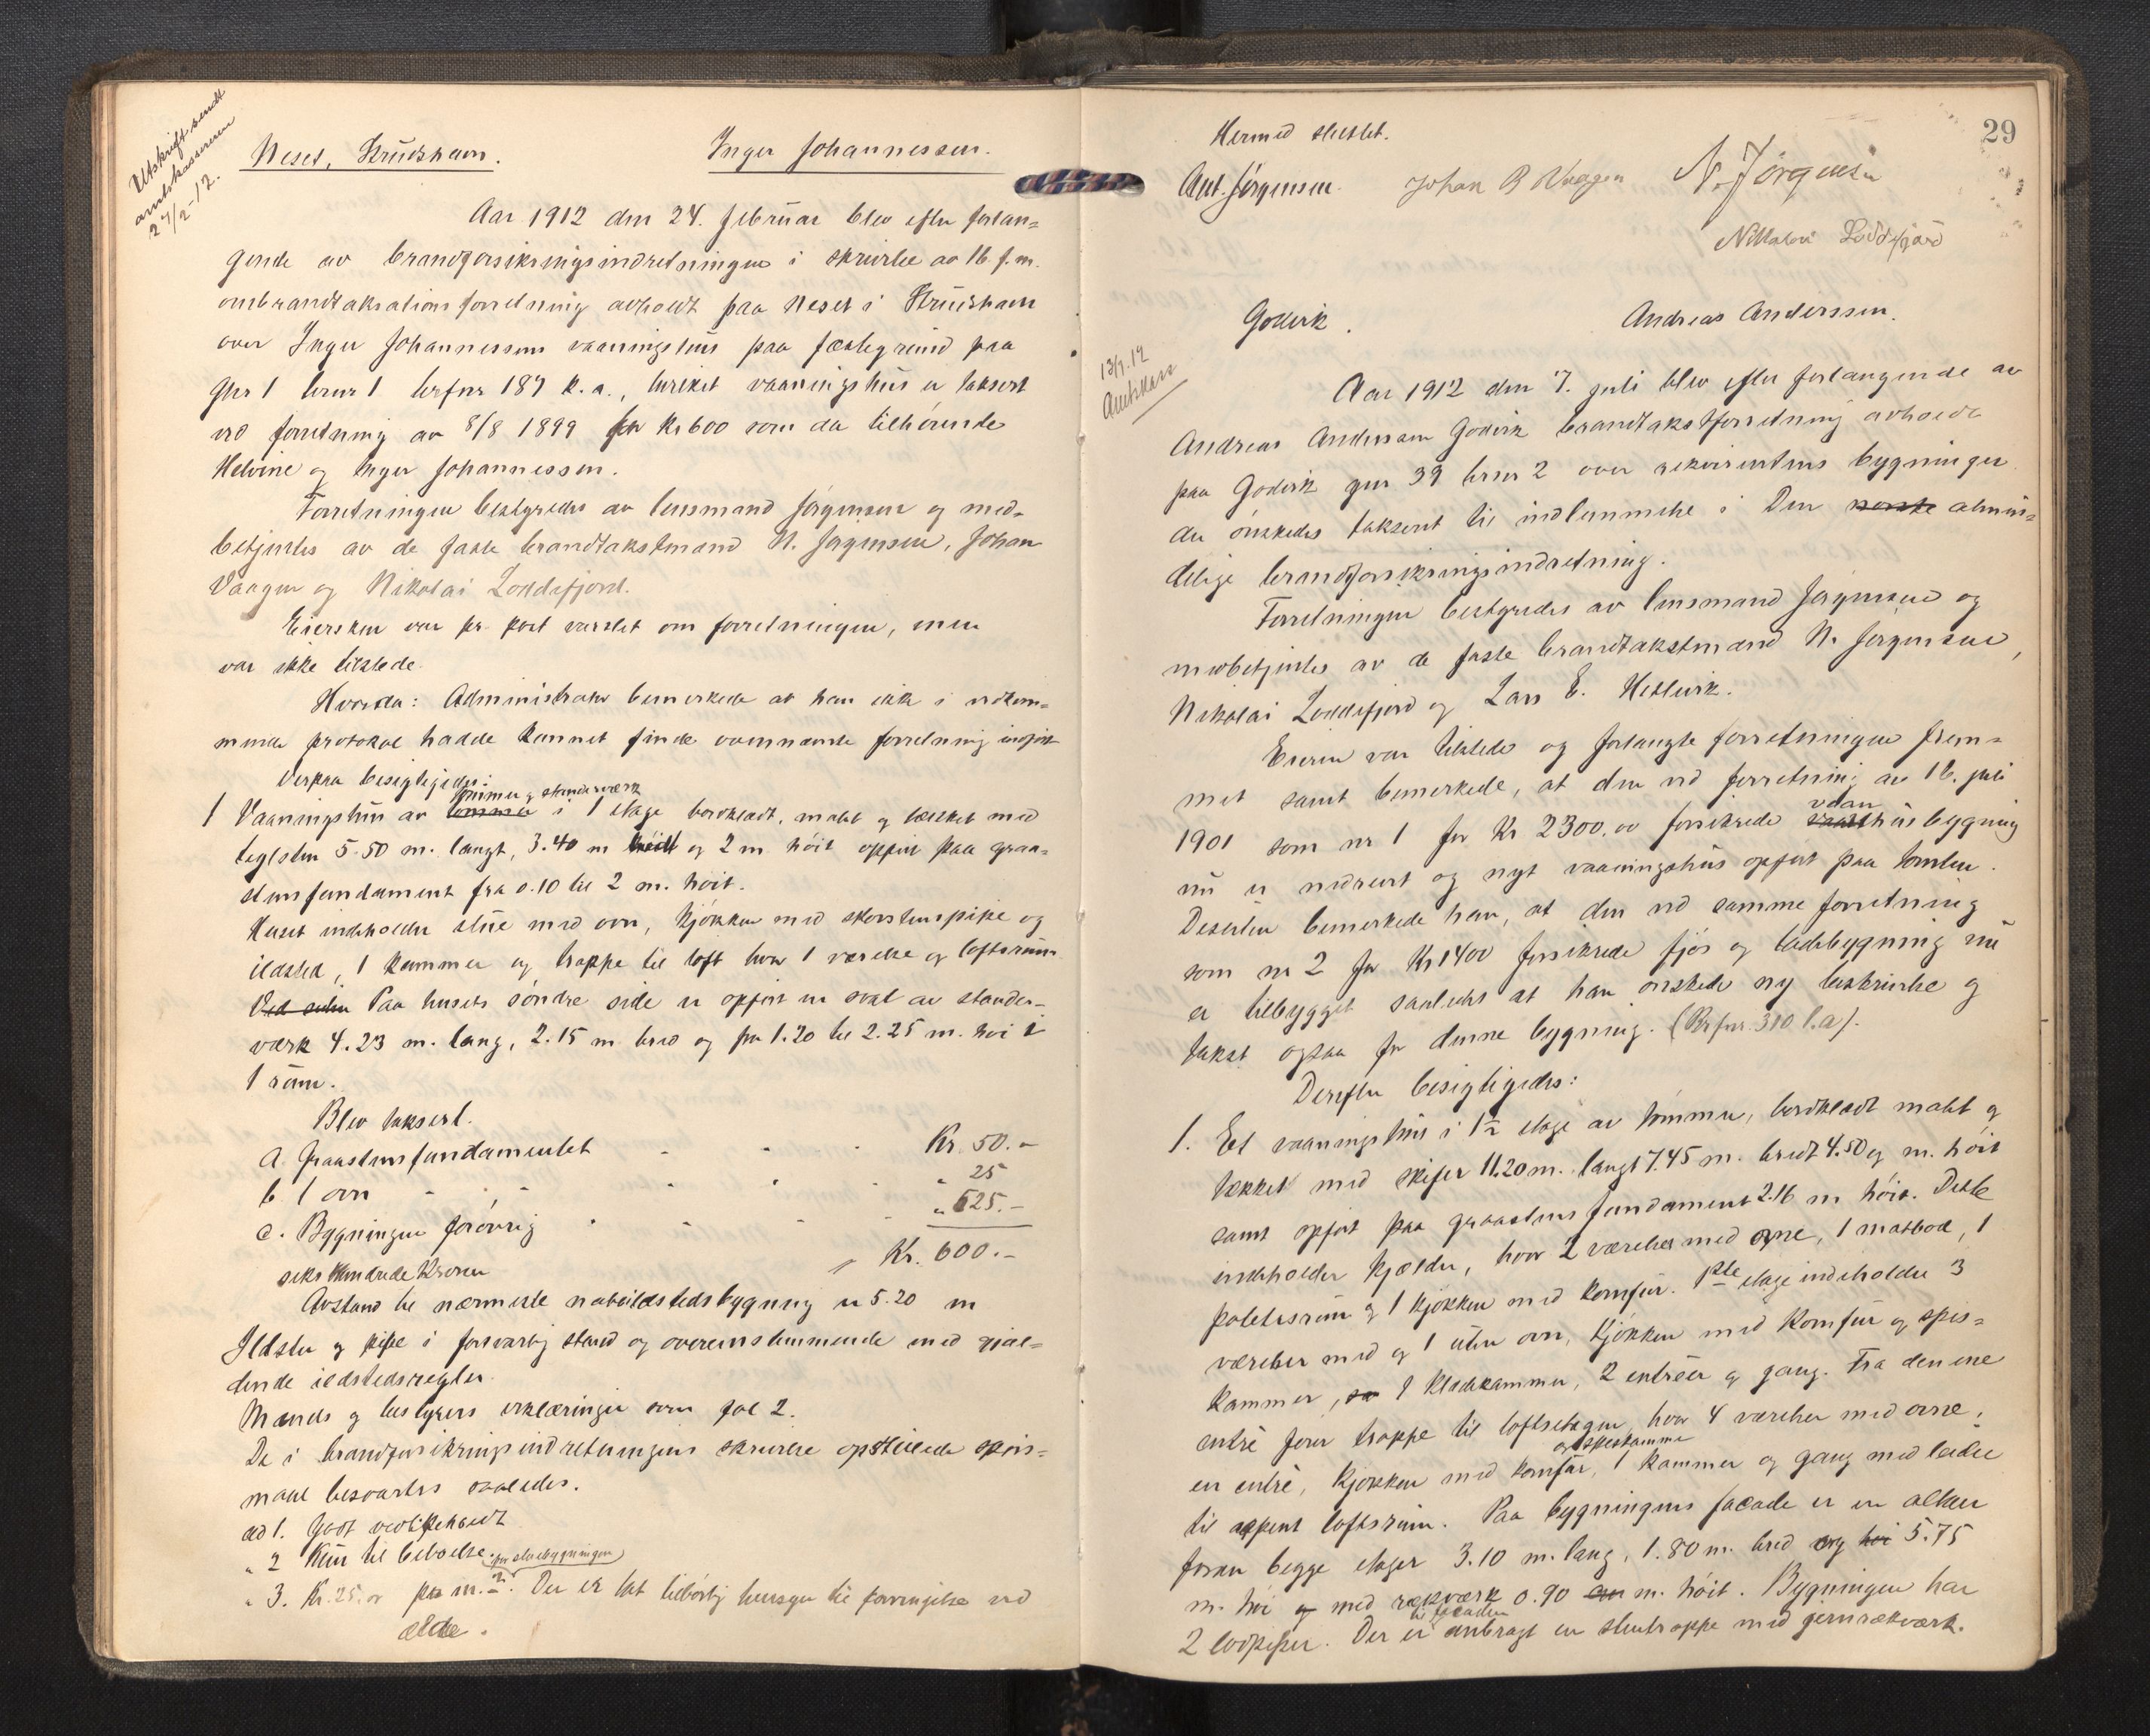 Utskrift sendt
amtskassereren
27/2-12.
Neset, Strudshavn.
Inger Johannessen.
Aar 1912 den 24. februar blev efter forlan-
gende av brandforsikringsindretningen i skrivelse av 16. f.m.
ombrandtakstationsforretning avholdt paa Neset i Strudshavn
over Inger Johannessens vaaningshus paa fæstegrund paa
gnr 1 brnr 1 brfnr 187 k. a., hvilket vaaningshus er taksert
ved forretning av 8/8 1899 for Kr 600 som da tilhørende
Helvine og Inger Johannessen.
Forretningen bestyredes av lensmand Jørgensen og med-
betjentes av de faste brandtakstmænd N. Jørgensen, Johan
Vaagen og Nikolai Loddefjord.
Eiersken var pr. post varslet om forretningen, men
var ikke tilstede.
Hvorda: Administrator bemerkede at han ikke i vedkom-
mende protokol hadde kunnet finde ovennævnte forretning indført
Derpaa besigtigedes:
1 Vaaningshus av tømmer tømmer og stenderværk i 1 etage bordklædt, malet og tækket med
teglsten 5.50 m. langt, 3.40 m bredt og 2 m. høit opført paa graa-
stensfundament fra 0.10 til 2 m. høit.
Huset indeholder stue med ovn, kjøkken med skorstenspipe og
ildsted, 1 kammer og trappe til loft hvor 1 værelse og loftsrum
Ved siden Paa husets søndre side er opført en sval av stender-
værk 4.23 m. lang, 2.15 m bred og fra 1.20 til 2.25 m. høi i
1 rum.
Blev taksert.
a. Graastensfundamentet - - - Kr. 50.-
b. 1 ovn - - - - - " 25
c. Bygningen forøvrig - - - - " 525.-
seks hundrede Kroner Kr. 600.-
Avstand til nærmeste naboildstedsbygning er 5.20 m
Ildsted og pipe i forsvarlig stand og overensstemmende med gjæl-
dende ildstedsregler.
Mænds og bestyrers erklæringer som fol 2.
De i brandforsikringsindretningens skrivelse opstillede spørs-
maal besvartes saaledes.
ad 1. Godt vedlikeholdt
" 2 Kun til beboelse.
" 3. Kr. 25.00 pr m.2 (for stuebygningen). Der er tat tilbørlig hensyn til forringelse ved
ælde.
29
Hermed sluttet.
Ant. Jørgensen. Johan B Vaagen N. Jørgensen
Nikkolai Loddefjord
Godvik.
Andreas Anderssen.
13/7.12
Amtskass
Aar 1912 den 7. juli blev efter forlangende av
Andreas Anderssen Godvik brandtakstforretning avholdt
paa Godvik gnr 39 brnr 2 over rekvirentens bygninger
der ønskedes taksert til indlemmelse i Den norske almin-
delige brandforsikringsindretning.
Forretningen bestyredes av lensmand Jørgensen og
medbetjentes av de faste brandtakstmænd N. Jørgensen,
Nikolai Loddefjord og Lars E. Hetlevik.
Eieren var tilstede og forlangte forretningen frem-
met samt bemerkede, at den ved forretning av 16. juli
1901 som nr 1 for Kr 2300.00 forsikrede vaanhusbygning
nu er nedrevet og nyt vaaningshus opført paa tomten.
Desuten bemerkede han, at den ved samme forretning
som nr 2 for Kr 1400 forsikrede fjøs og ladebygning nu
er tilbygget saaledes at han ønskede ny beskrivelse og
takst ogsaa for denne bygning. (Brfnr. 310 l.a).
Derefter besigtigedes:
1. Et vaaningshus i 1½ etage av tømmer, bordklædt malet og
tækket med skifer 11.20 m. langt 7.45 m. bredt 4.50 og m. høit
samt opført paa graastens fundament 2.16 m høit. Dette
indeholder kjælder, hvor 2 værelser med ovne, 1 matbod, 1
potetesrum og 1 kjøkken med komfur. 1ste etage indeholder 3
værelser med og 1 uten ovn, kjøkken med komfur og spis-
kammer, 1 klædekammer, 2 entréer og gang. Fra den ene
entré fører trappe til loftsetagen, hvor 4 værelser med ovne,
en entré, kjøkken med komfur og spiskammer, 1 kammer og gang med leder
til aapent loftsrum. Paa bygningens facade er en altan
foran begge etager 3.10 m. lang, 1.80 m. bred og høi 5.75
m. høi og med rækværk 0.90 m. høit. Bygningen har
2 lodpiper. Der er til facaden anbragt en stentrappe med jernrækværk.